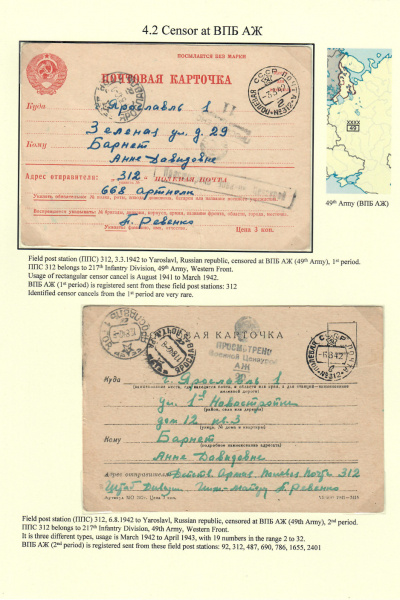 4.2 Censor at ВПБ АЖ
ПОСЫЛАЕТСЯ БЕЗ МАРКИ
ПОЧТОВАЯ КАРТОЧКА
СССР ПОЧТА
ПОЛЕВАЯ
№312
Куда Ярославль 1
Зеленая ул. д. 29
Кому Барнет
Анне Давидовне
Адрес отправителя: 312 ПОЛЕВАЯ ПОЧТА
668 артполк
П. Ревенко
Цена 3 коп.
XXXX
49
49th Army (ВПБ АЖ)
Field post station (ППС) 312, 3.3.1942 to Yaroslavl, Russian republic, censored at ВПБ АЖ (49th Army), 1st period.
ППС 312 belongs to 217th Infantry Division, 49th Army, Western Front.
Usage of rectangular censor cancel is August 1941 to March 1942.
ВПБ АЖ (1st period) is registered sent from these field post stations: 312
Identified censor cancels from the 1st period are very rare.
КАРТОЧКА
ПРОСМОТРЕНО
Военной Цензурой
АЖ
Куда г. Ярославль 1
ул. 1я Новостройки
дом 12 кв. 3
Кому Барнет
Анне Давидовне
Адрес отправителя: 312
П. Ревенко
Field post station (ППС) 312, 6.8.1942 to Yaroslavl, Russian republic, censored at ВПБ АЖ (49th Army), 2nd period.
ППС 312 belongs to 217th Infantry Division, 49th Army, Western Front.
It is three different types, usage is March 1942 to April 1943, with 19 numbers in the range 2 to 32.
ВПБ АЖ (2nd period) is registered sent from these field post stations: 92, 312, 487, 690, 786, 1655, 2401